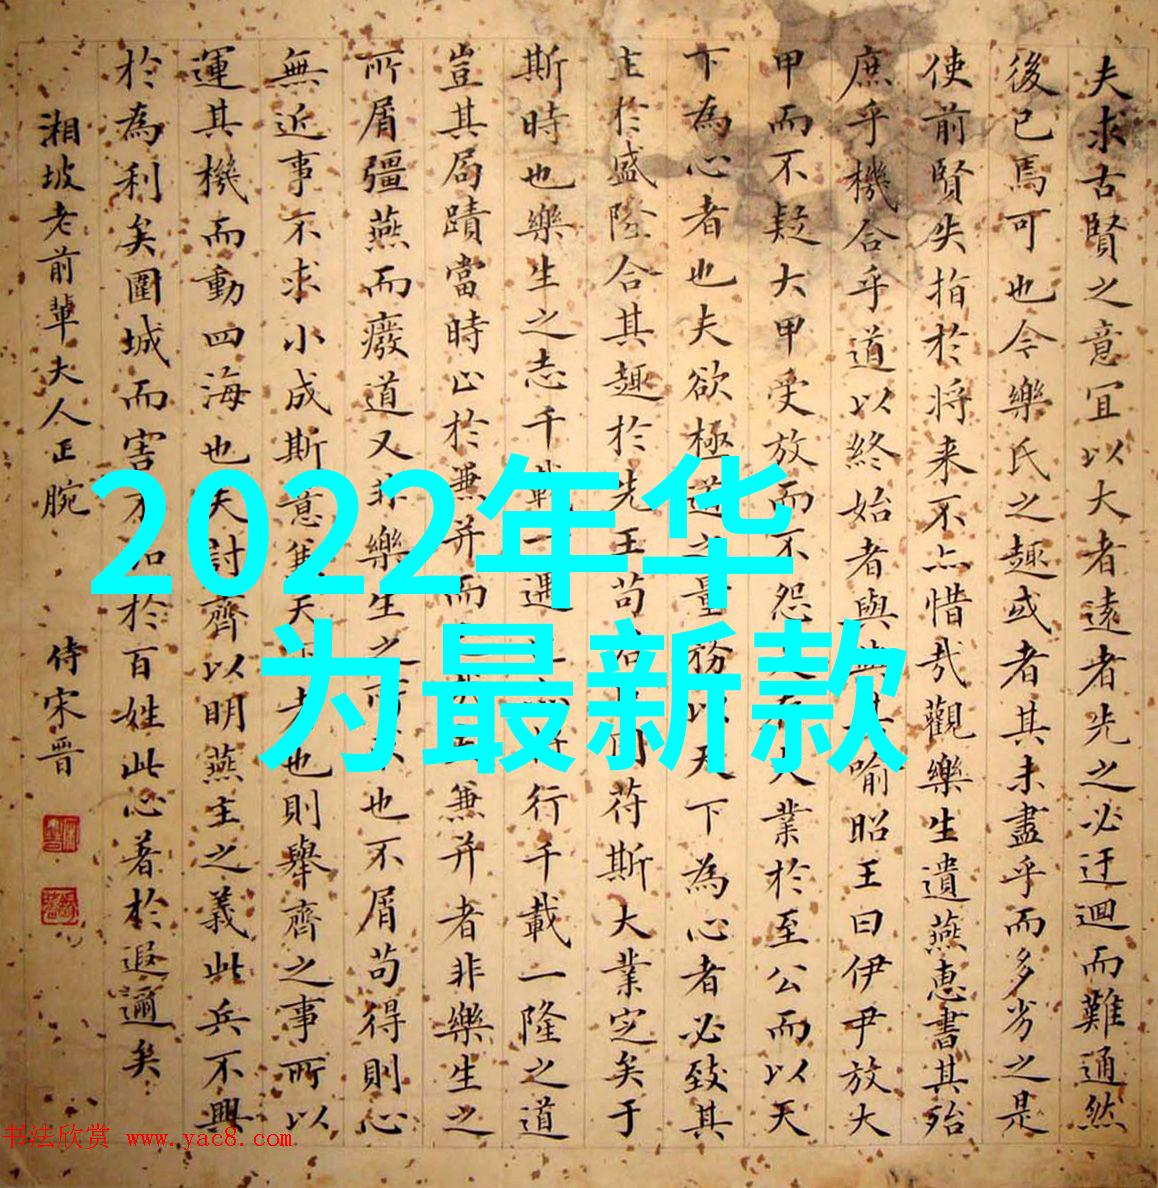 夫求古賢之意宜以大者遠者先之必迂迴而難通然
後已焉可也今樂氏之趣或者其未盡乎而多劣之是
使前賢失指於將来不亦惜哉觀樂生遺燕惠書其殆
庶乎機合乎道以終始者與其喻昭王曰伊尹放大
甲而不疑大甲受放而不怨存大業於至公而以天
下為心者也夫欲極道之量務以天下為心者必致其
主於盛隆合其趣於先王苟符斯大業定矣于
斯時也樂生之志千載一遇行千載一隆之道
豈其局蹟當時止於兼并而兼并者非樂生之
所屑彊燕而廢道又非樂生之也不屑苟得則心
無近事不求小成斯意兼天者也則舉齊之事所以
運其機而動四海也夫討齊以明燕主之義此兵不興
於為利矣圍城而害不加於百姓此心著於遐邇矣
湘坡老前輩夫人正腕 侍宋晉
2022年华
为最新款
书法欣赏 www.yac8.com